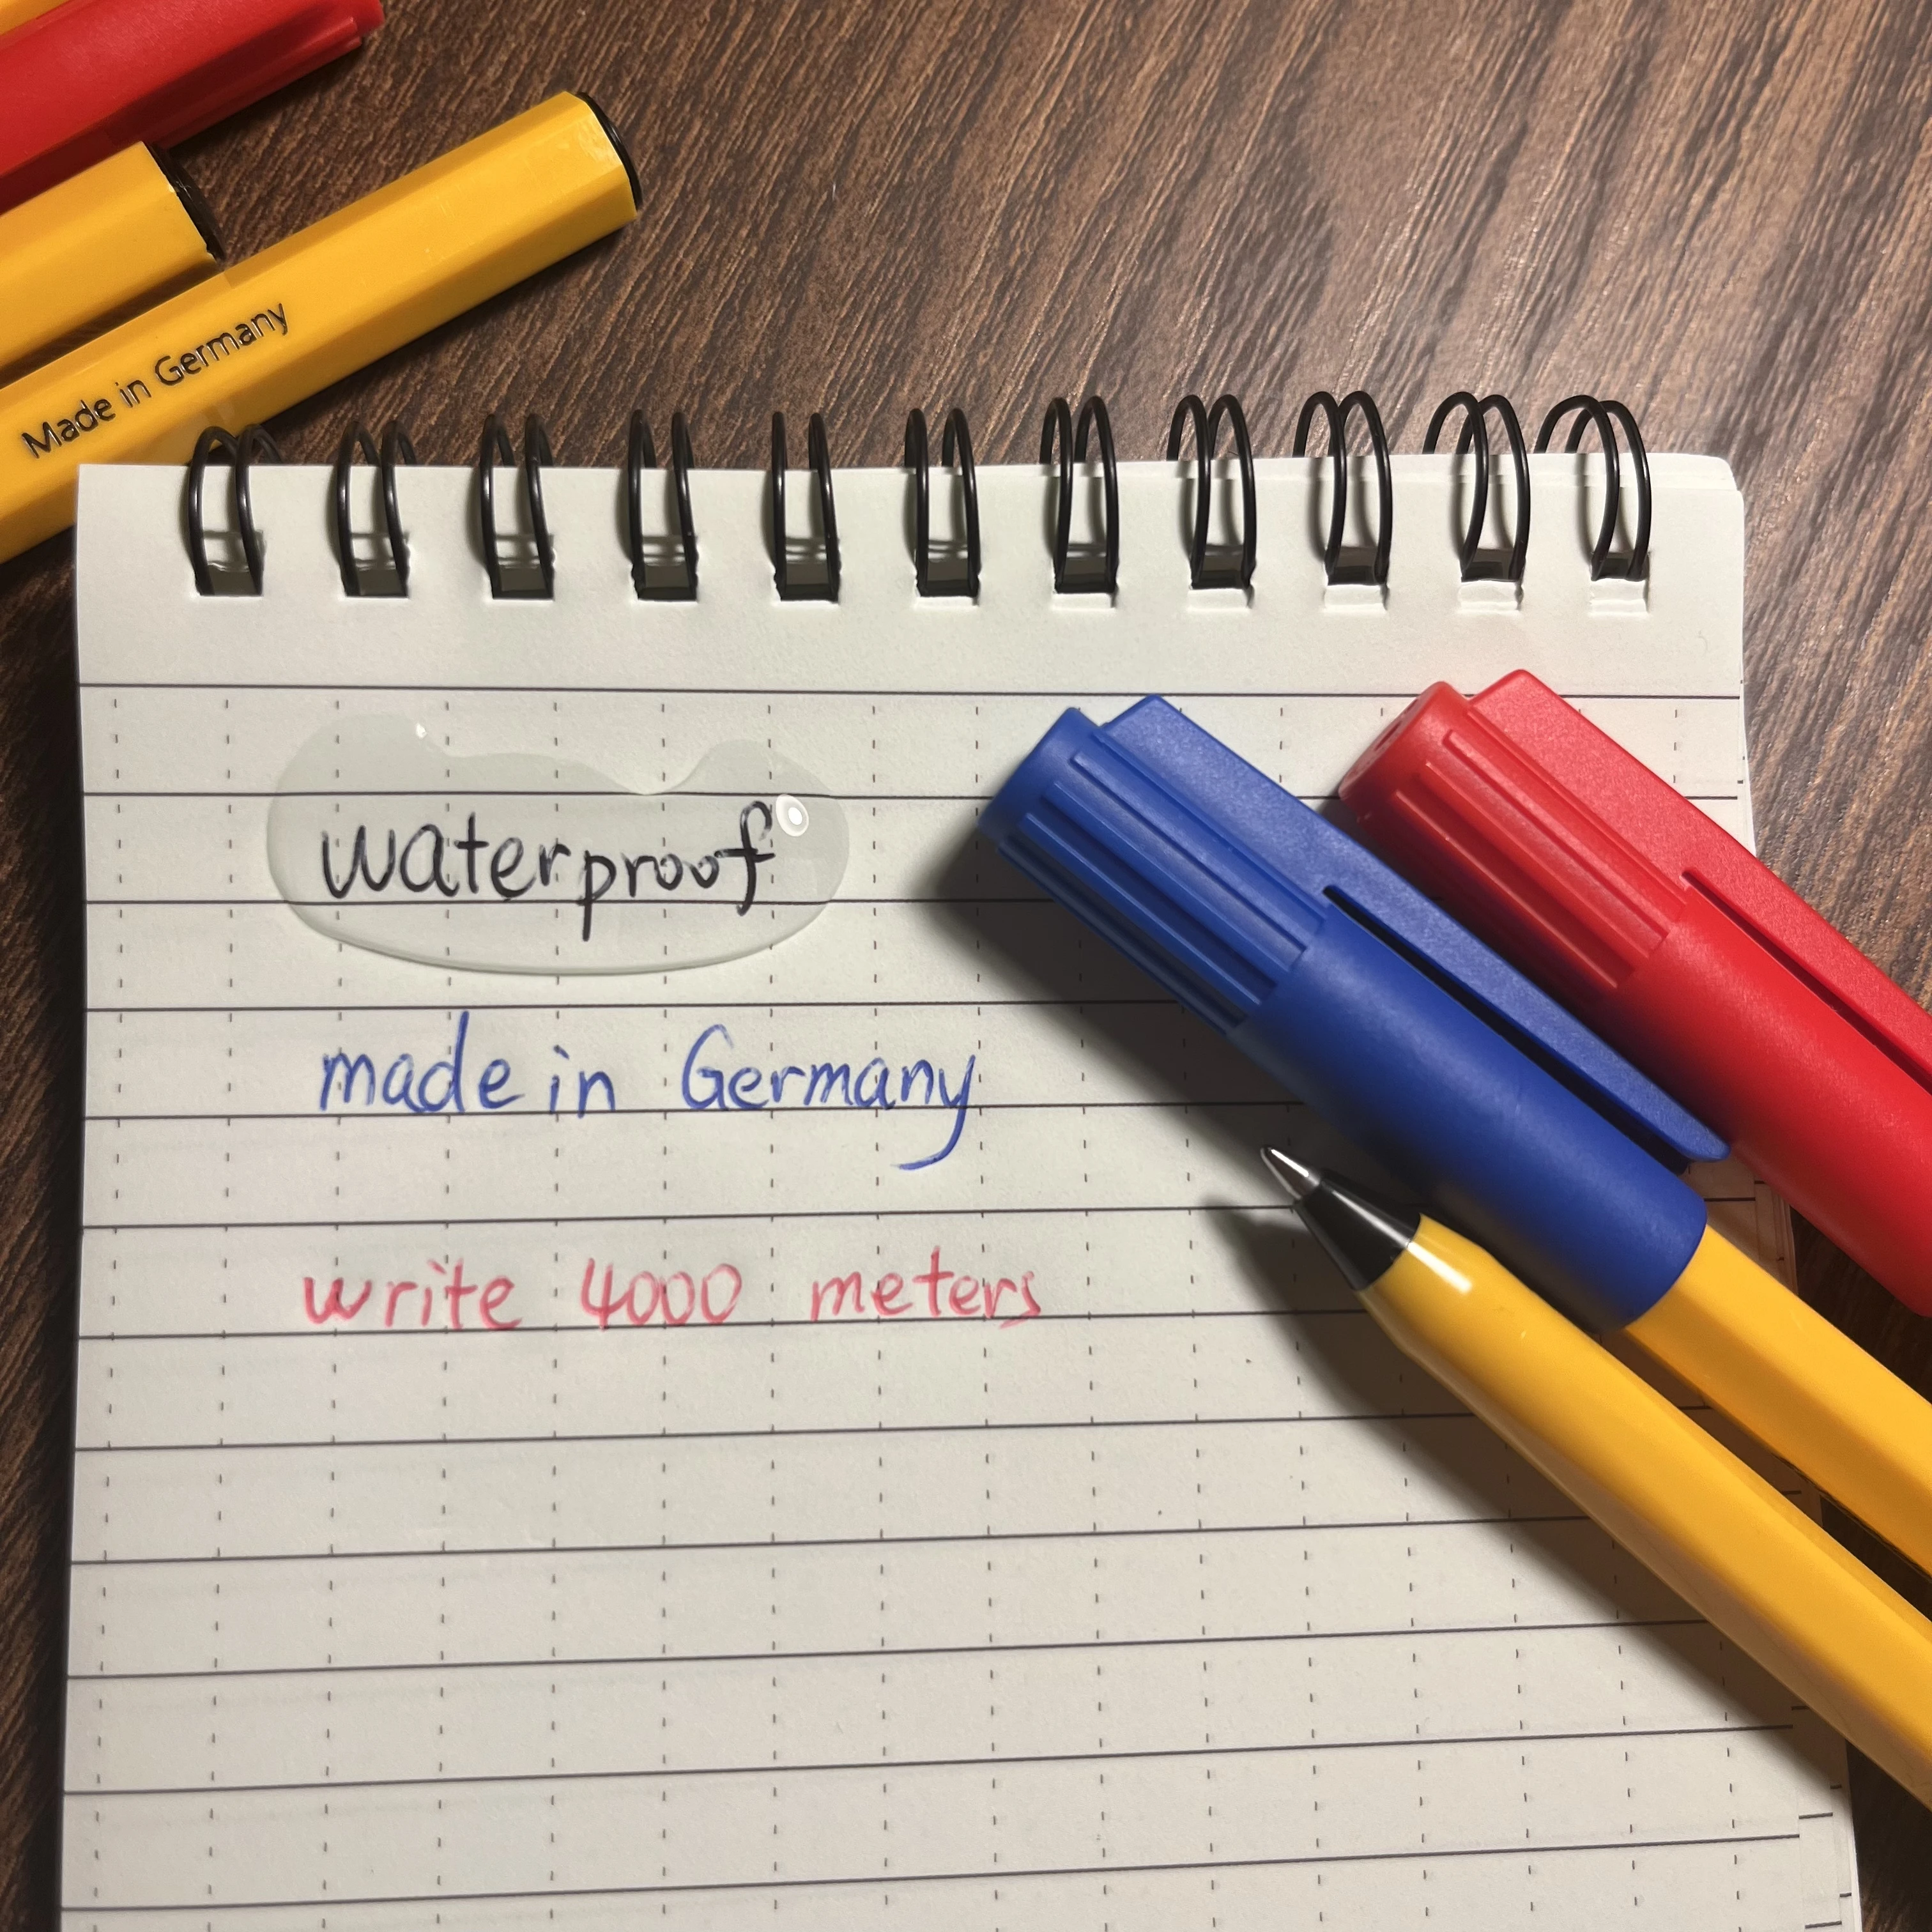 Made in Germany
waterproof
made in Germany
write 4000 meters